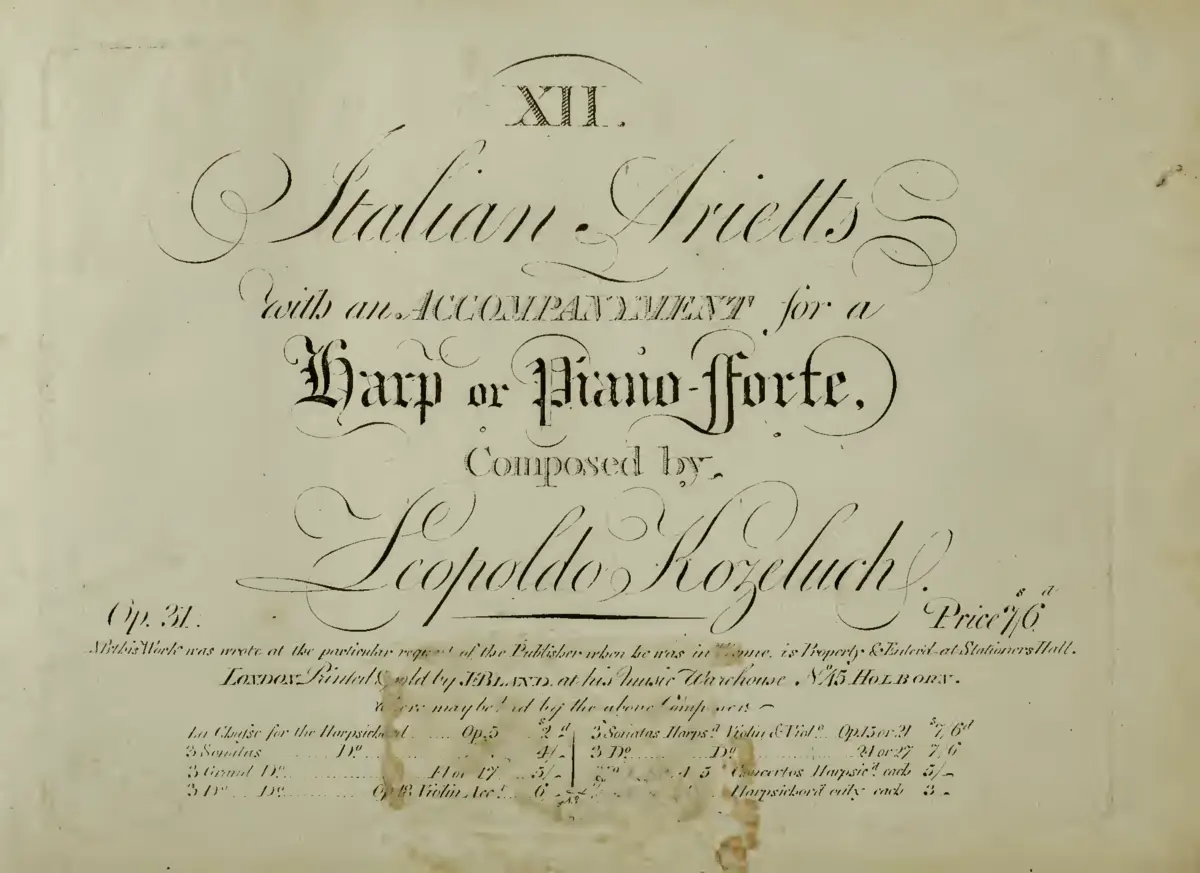 XII.
Italian Arietts
with an ACCOMPANYMENT for a
Harp or Piano-Fforte.
Composed by
Leopoldo Kozeluch.
Op. 31. Price 7/6 s d
NB this Work was wrote at the particular request of the Publisher when he was in Vienne, is Property & Enter'd at Stationers Hall.
LONDON Printed & sold by J. BLAND at his Music Warehouse No. 45 HOLBORN.
Where may be had by the above Composer
La Chasse for the Harpsichord Op. 5 2
3 Sonatas Do. 4/-
3 Grand Do. 17 5/-
3 Do. Do. Op. Violin Acc. 6
3 Sonatas Harpsd. Violin & Viol. Op. 15 or 21 7/6
3 Do. Do. 24 or 27 7/6
4 5 Concertos Harpsicd. each 5/-
Harpsichord only each 3